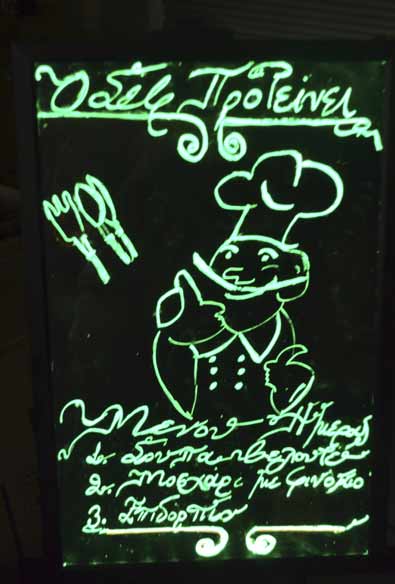 Ο Σεφ Προτείνει
Μενού Ημέρας
1. Σούπα βελουτέ
2. Μοσχάρι με φινόκιο
3. Επιδόρπιο